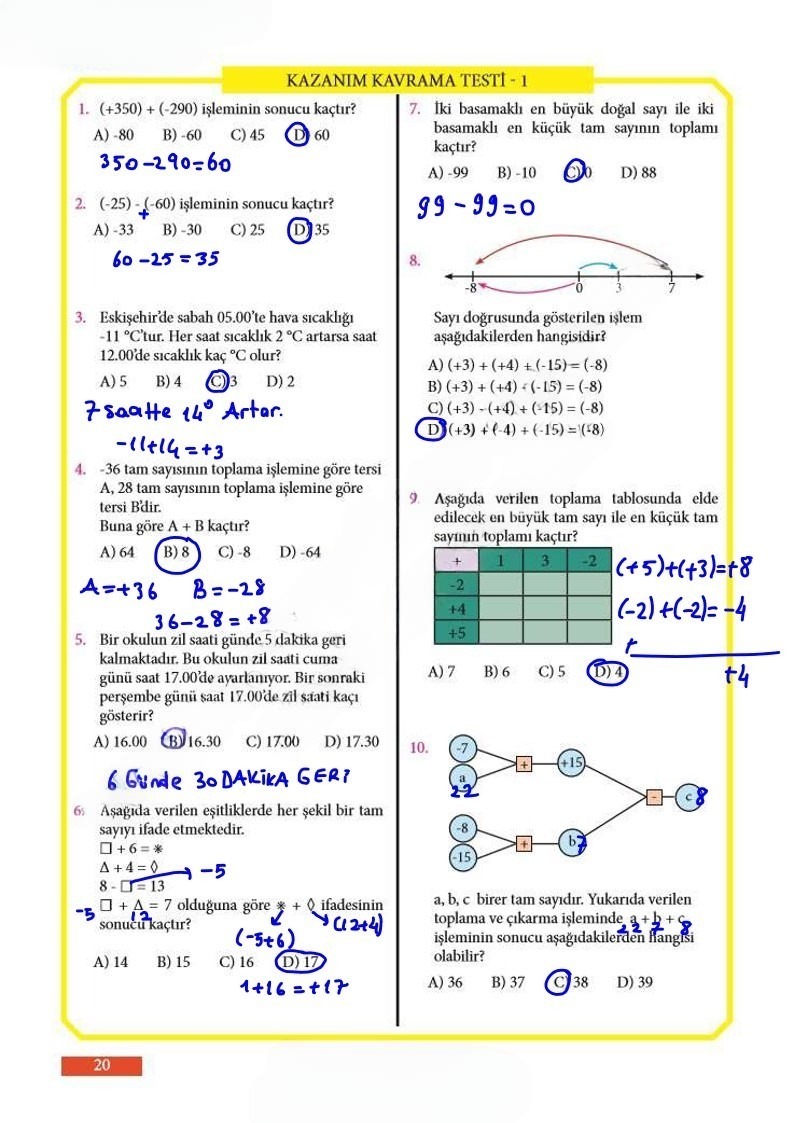 KAZANIM KAVRAMA TESTİ - 1
1. (+350) + (-290) işleminin sonucu kaçtır?
A) -80 B) -60 C) 45 D) 60
350-290=60
2. (-25) - (-60) işleminin sonucu kaçtır?
+
A) -33 B) -30 C) 25 D) 35
60-25=35
3. Eskişehir'de sabah 05.00'te hava sıcaklığı
-11 °C'tur. Her saat sıcaklık 2 °C artarsa saat
12.00'de sıcaklık kaç °C olur?
A) 5 B) 4 C) 3 D) 2
7 saatte 14° Artar.
-11+14=+3
4. -36 tam sayısının toplama işlemine göre tersi
A, 28 tam sayısının toplama işlemine göre
tersi B'dir.
Buna göre A + B kaçtır?
A) 64 B) 8 C) -8 D) -64
A=+36 B=-28
36-28=+8
5. Bir okulun zil saati günde 5 dakika geri
kalmaktadır. Bu okulun zil saati cuma
günü saat 17.00'de ayarlanıyor. Bir sonraki
perşembe günü saat 17.00'de zil saati kaçı
gösterir?
A) 16.00 B) 16.30 C) 17.00 D) 17.30
6 Günde 30 DAKİKA GERİ
6. Aşağıda verilen eşitliklerde her şekil bir tam
sayıyı ifade etmektedir.
□ + 6 = ✳
Δ + 4 = ◊
8 - □ = 13 -5
□ + Δ = 7 olduğuna göre ✳ + ◊ ifadesinin
-5 12
sonucu kaçtır?
(-5+6) (12+4)
A) 14 B) 15 C) 16 D) 17
1+16=+17
7. İki basamaklı en büyük doğal sayı ile iki
basamaklı en küçük tam sayının toplamı
kaçtır?
A) -99 B) -10 C) 0 D) 88
99-99=0
8.
-8 0 3 7
Sayı doğrusunda gösterilen işlem
aşağıdakilerden hangisidir?
A) (+3) + (+4) + (-15) = (-8)
B) (+3) + (+4) - (-15) = (-8)
C) (+3) - (+4) + (-15) = (-8)
D) (+3) + (-4) + (-15) = (-8)
9. Aşağıda verilen toplama tablosunda elde
edilecek en büyük tam sayı ile en küçük tam
sayının toplamı kaçtır?
+ 1 3 -2
-2
+4
+5
(+5)+(+3)=+8
(-2)+(-2)=-4
+
+4
A) 7 B) 6 C) 5 D) 4
10.
-7
a
22
+
+15
-8
-15
+
b
7
-
c
8
a, b, c birer tam sayıdır. Yukarıda verilen
toplama ve çıkarma işleminde a + b + c
22 7 8
işleminin sonucu aşağıdakilerden hangisi
olabilir?
A) 36 B) 37 C) 38 D) 39
20